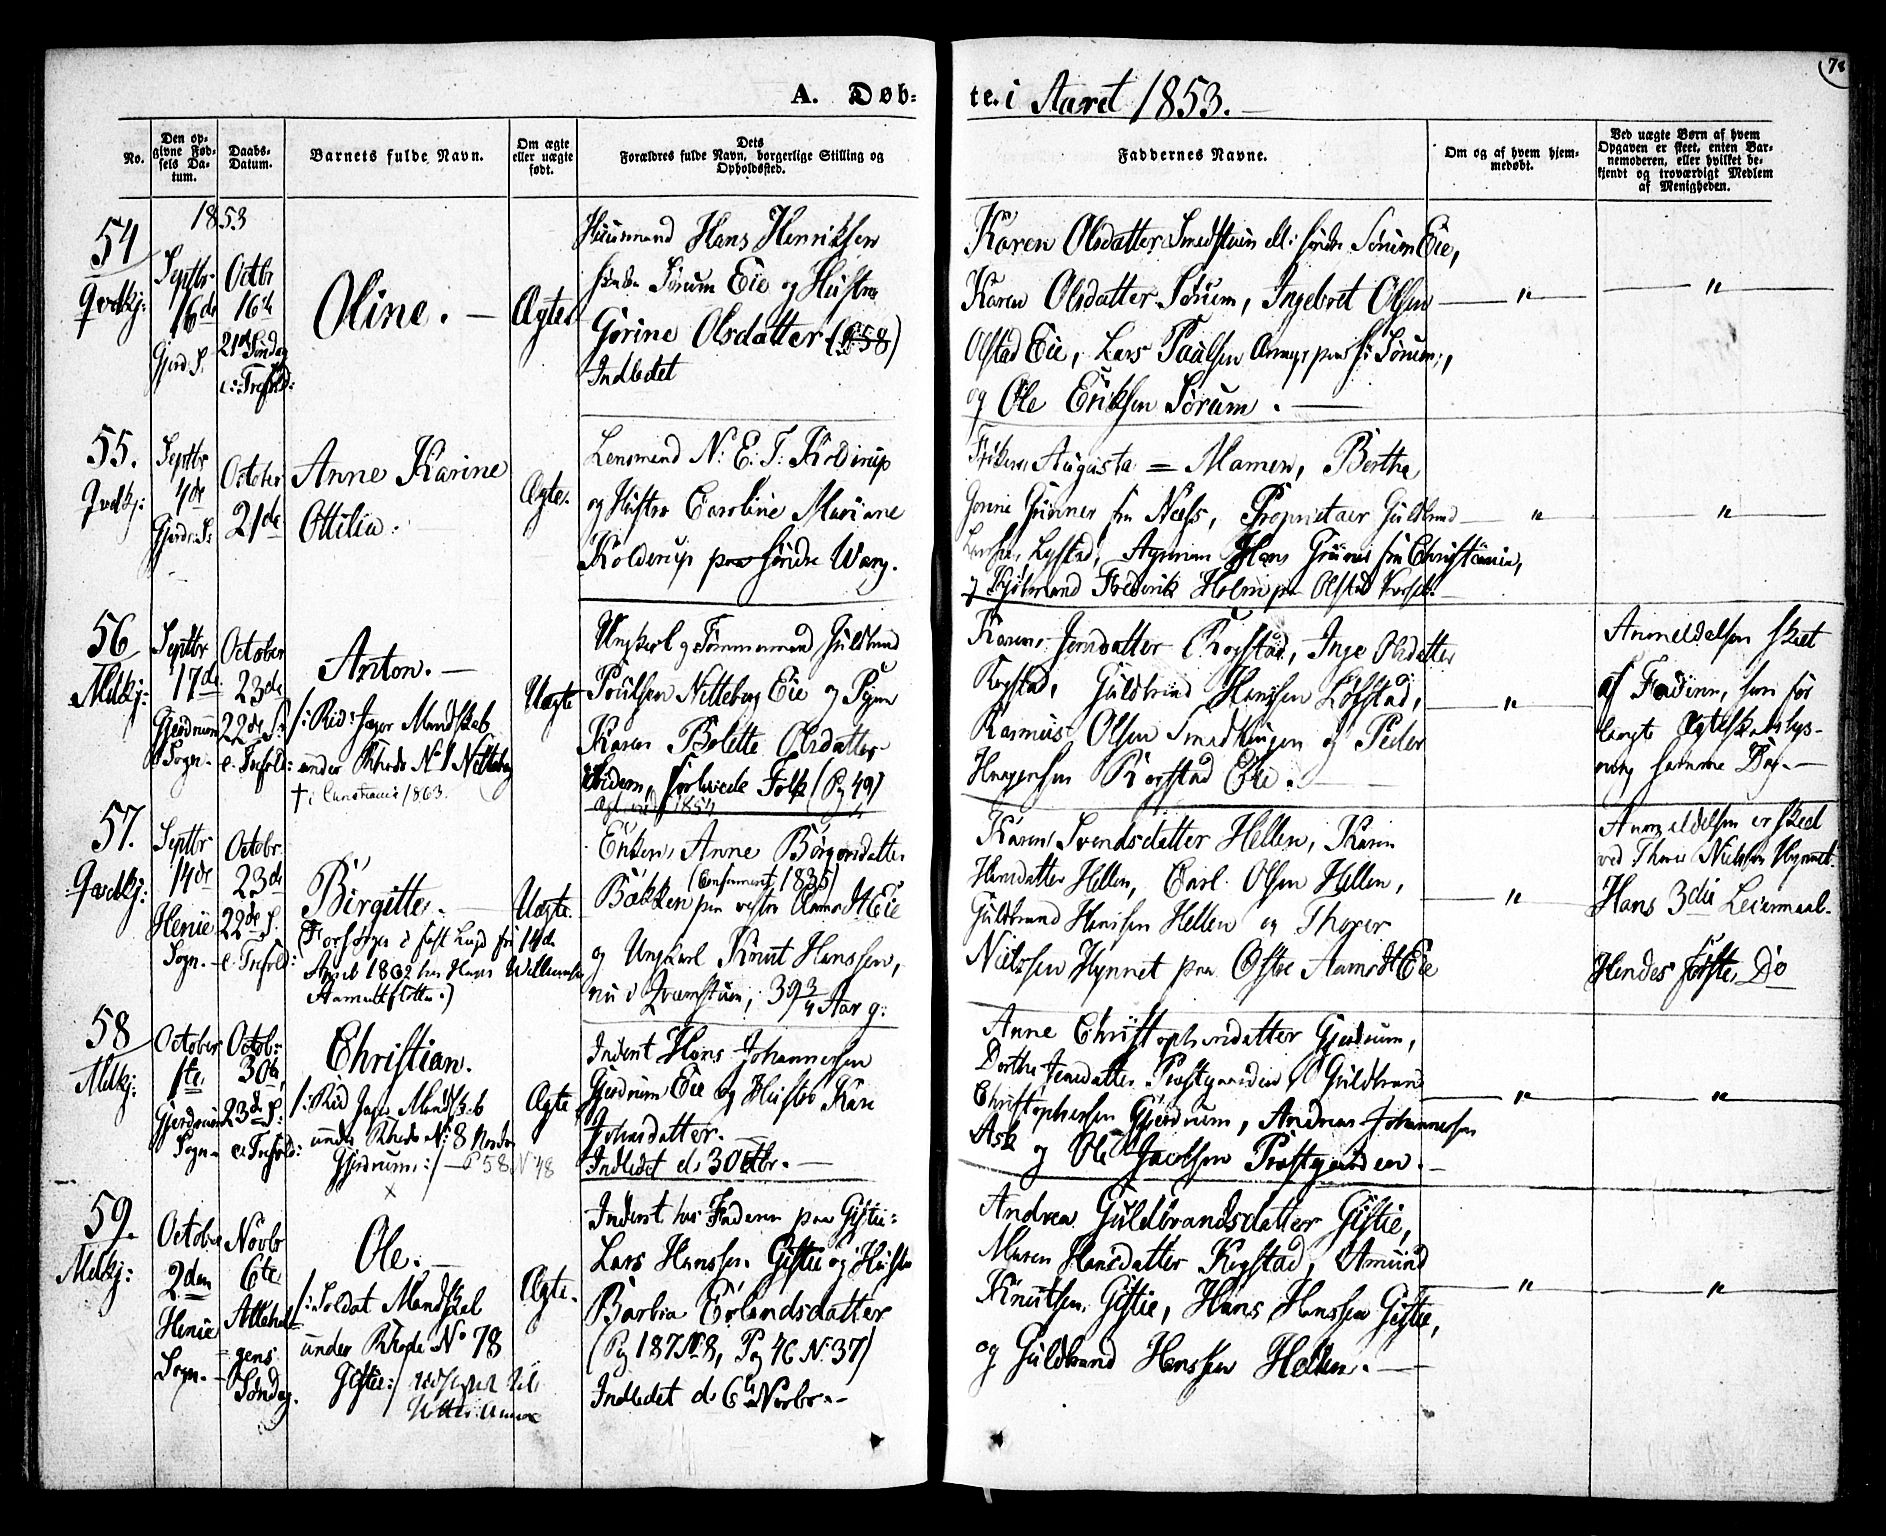 78
A. Døb-
te. i Aaret 1853.
No.
Den op-
givne Fød-
sels Da-
tum.
Daabs-
Datum.
Barnets fulde Navn.
Om ægte
eller uægte
født.
Dets
Forældres fulde Navn, borgerlige Stilling og
Opholdssted.
Faddernes Navne.
Om og af hvem hjem-
medøbt.
Ved uægte Børn af hvem
Opgaven er skeet, enten Bar-
nemoderen, eller hvilket be-
kjendt og troværdigt Medlem
af Menigheden.
1853
54
Qvdkj:
Septbr
16de
Gjerd. S.
Octbr
16de
21de Søndag
e: Trefold:
Oline. —
Ægte
Huusmand Hans Henriksen
Søndre Sørum Eie og Hustro
Gorine Olsdatter (P. 58)
Indledet
Karen Olsdatter Smedstuen ell: søndre Sørum Eie,
Karen Olsdatter Sørum, Ingebret Olsen
Olstad Eie, Lars Paulsen paa S: Sørum,
og Ole Eriksen Sørum. —
"
"
55.
Qvdkj:
Septbr
4de
Gjerd. S.
October
21de
Anne Karine
Ottilia.
Ægte.
Lensmand N: E: T: Kolderup
og Hustro Caroline Mariane
Kolderup paa søndre Wang.
Frøken Augusta = Mamen, Berthe
Gorine Grüner fra Næss, Proprietair Guldbrand
Lystad, Hans Grüner fra Christiania,
og Frederik Holm paa Olstad
"
"
56
Mdkj:
Septbr
17de
Gjerdrum
Sogn.
October
23de
22de S:
e. Trefold:
Anton. —
/: Rid: Jæger Mandskab
under Rhode No 1 Nitteberg
† i Christiania 1863.
Uægte
Ungkarl og Tømmermand Guldbrand
Poulsen Nitteberg Eie og Pigen
Karen Bolette Olsdatter
ibidem, forlovede Folk (Pg 49)
1854
Karen Jensdatter Rogstad, Inge Olsdatter
Rogstad, Guldbrand Hansen Løfstad,
Rasmus Olsen Smedhuugen og Peder
Haagensen Rogstad Eie. —
"
Anmeldelsen skeet
af Faderen, som for-
langte Ægteskabslys-
ning samme Dag. —
57.
Qvdkj:
Septbr
14de
Henie
Sogn. —
Octobr.
23de
22de S.
e. Trefold:
Birgitte. —
(Forsørges i fast Lægd fra 14de
April 1862 hos Hans Willumsen
Aamodtslotten.)
Uægte.
Enken Anne Børgersdatter
(Confirmeret 1835)
Bakken paa vestre Aamodt Eie
og Ungkarl Knut Hanssen,
nu i Qvæmstuen, 39 3/4 Aar g:
Karen Svendsdatter Hellen, Karen
Hansdatter Hellen, Carl Olsen Hellen,
Guldbrand Hanssen Hellen og Thorer
Nielsen Hynnet paa Østre Aamodt Eie
"
Anmeldelsen er skeet
ved Thorer Nielsen Hynnet.
Hans 3die Leiermaal.
Hendes første Do
58
Mdkj:
October
1ste
Gjerdrum
Sogn.
Octob:
30te
23de S:
e: Trefold:
Christian.
/: Rid Jæger Mandskab
under Rhode No: 8 Nordre
Gjerdrum :/ — P 58 N 48
×
Ægte
Inderst Hans Johannessen
Gjerdrum Eie og Hustro Kari
Johnsdatter.
Indledet d: 30 Octbr. —
Anne Christophersdatter Gjerdrum,
Dorthe Jensdatter Præstgaarden, Guldbrand
Christophersen Gjerdrum, Andreas Johannesen
Ask og Ole Jacobsen Præstgaarden. —
"
"
59.
Mdkj:
October
2den
Henie
Sogn. —
Novbr
6te
Allehel-
gens
Søndag.
Ole. —
/: Soldat Mandskab
under Rhode No 78
Gistie :/
Ægte.
Inderst hos Faderen paa Gistie:
Lars Hanssen Gistie og Hustro
Barbra Erlandsdatter
(Pg 187 N 8, Pag 46 N: 37)
Indledet d: 6te Novbr. —
Andrea Guldbrandsdatter Gistie,
Maren Hansdatter Rogstad, Amund
Knutsen Gistie, Hans Hanssen Gistie,
og Guldbrand Hanssen Hellen. —
"
"